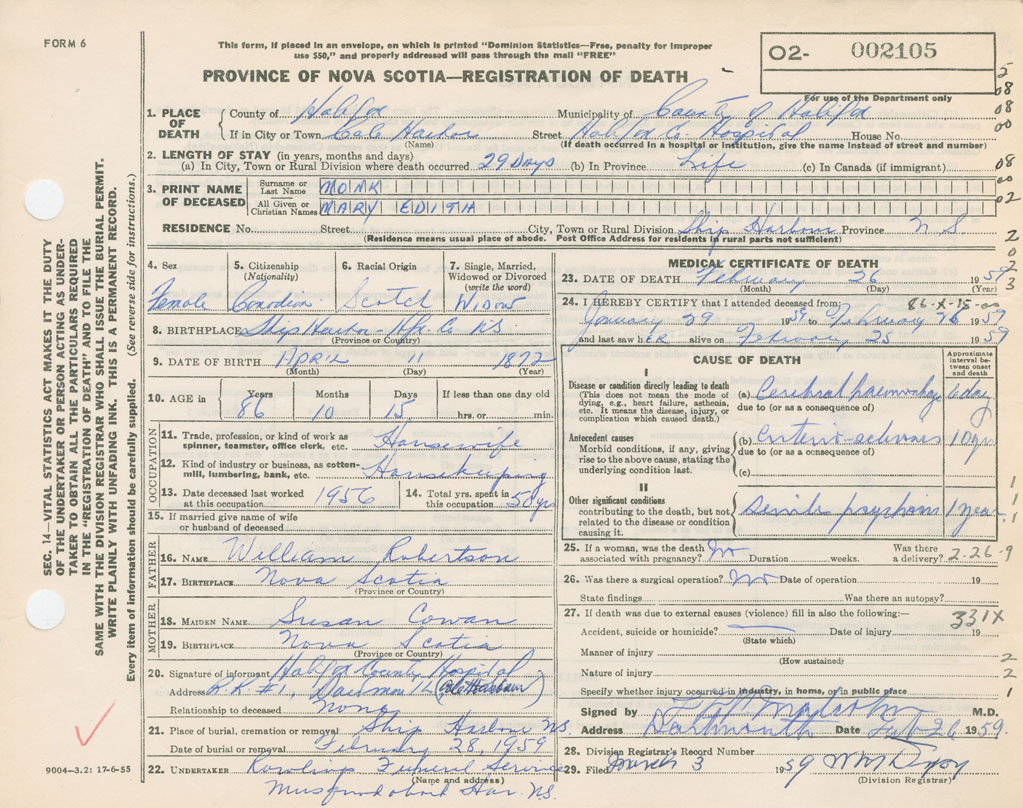 FORM 6
This form, if placed in an envelope, on which is printed "Dominion Statistics—Free, penalty for improper
use $50," and properly addressed will pass through the mail "FREE"
PROVINCE OF NOVA SCOTIA—REGISTRATION OF DEATH
O2- 002105
For use of the Department only
1. PLACE OF DEATH County of Halifax Municipality of County of Halifax
If in City or Town Cole Harbor Street Halifax Co. Hospital House No.
(Name) (If death occurred in a hospital or institution, give the name instead of street and number)
2. LENGTH OF STAY (in years, months and days)
(a) In City, Town or Rural Division where death occurred 29 Days (b) In Province Life (c) In Canada (if immigrant)
3. PRINT NAME OF DECEASED Surname or Last Name MONK
All Given or Christian Names MARY EDITH
RESIDENCE No. Street City, Town or Rural Division Ship Harbour Province N.S.
(Residence means usual place of abode. Post Office Address for residents in rural parts not sufficient)
4. Sex 5. Citizenship (Nationality) 6. Racial Origin 7. Single, Married, Widowed or Divorced (write the word)
Female Canadian Scotch Widow
8. BIRTHPLACE Ship Harbor - Hfx. Co. N.S.
(Province or Country)
9. DATE OF BIRTH APRIL 11 1872
(Month) (Day) (Year)
10. AGE in Years Months Days If less than one day old
86 10 15 hrs. or min.
OCCUPATION
11. Trade, profession, or kind of work as spinner, teamster, office clerk, etc. Housewife
12. Kind of industry or business, as cotton-mill, lumbering, bank, etc. Housekeeping
13. Date deceased last worked at this occupation 1956 14. Total yrs. spent in this occupation 50 yrs
15. If married give name of wife or husband of deceased
FATHER
16. NAME William Robertson
17. BIRTHPLACE Nova Scotia
(Province or Country)
MOTHER
18. MAIDEN NAME Susan Cowan
19. BIRTHPLACE Nova Scotia
(Province or Country)
20. Signature of informant Halifax County Hospital
Address R.R #1, Dartmouth (Cole Harbour)
Relationship to deceased None
21. Place of burial, cremation or removal Ship Harbour N.S.
Date of burial or removal February 28, 1959
22. UNDERTAKER Rowlings Funeral Service
(Name and address)
Musquodoboit Har. N.S.
MEDICAL CERTIFICATE OF DEATH
23. DATE OF DEATH February 26 1959
(Month) (Day) (Year)
86-X-15-00
24. I HEREBY CERTIFY that I attended deceased from:
January 29 1959 to February 26 1959
and last saw hER alive on February 25 1959
CAUSE OF DEATH
Approximate interval between onset and death
I
Disease or condition directly leading to death
(This does not mean the mode of dying, e.g., heart failure, asthenia, etc. It means the disease, injury, or complication which caused death.)
(a) Cerebral haemorrhage 1 day
due to (or as a consequence of)
Antecedent causes
Morbid conditions, if any, giving rise to the above cause, stating the underlying condition last.
(b) Arterio-sclerosis 10 yrs
due to (or as a consequence of)
(c)
II
Other significant conditions
contributing to the death, but not related to the disease or condition causing it.
Senile psychosis 1 year
25. If a woman, was the death associated with pregnancy? No Duration weeks. Was there a delivery? 2-26-9
26. Was there a surgical operation? No Date of operation 19
State findings Was there an autopsy?
27. If death was due to external causes (violence) fill in also the following:— 331X
Accident, suicide or homicide? Date of injury 19
(State which)
Manner of injury
(How sustained)
Nature of injury
Specify whether injury occurred in industry, in home, or in public place
Signed by M.D.
Address Dartmouth Date Feb 26 1959.
28. Division Registrar's Record Number
29. Filed March 3 1959
(Division Registrar)
SEC. 14—VITAL STATISTICS ACT MAKES IT THE DUTY
OF THE UNDERTAKER OR PERSON ACTING AS UNDER-
TAKER TO OBTAIN ALL THE PARTICULARS REQUIRED
IN THE "REGISTRATION OF DEATH" AND TO FILE THE
SAME WITH THE DIVISION REGISTRAR WHO SHALL ISSUE THE BURIAL PERMIT.
WRITE PLAINLY WITH UNFADING INK. THIS IS A PERMANENT RECORD.
Every item of information should be carefully supplied. (See reverse side for instructions.)
9004—3.2: 17-6-55
5
08
08
00
08
00
02
2
0
2
2
3
1
1
1
2
2
1